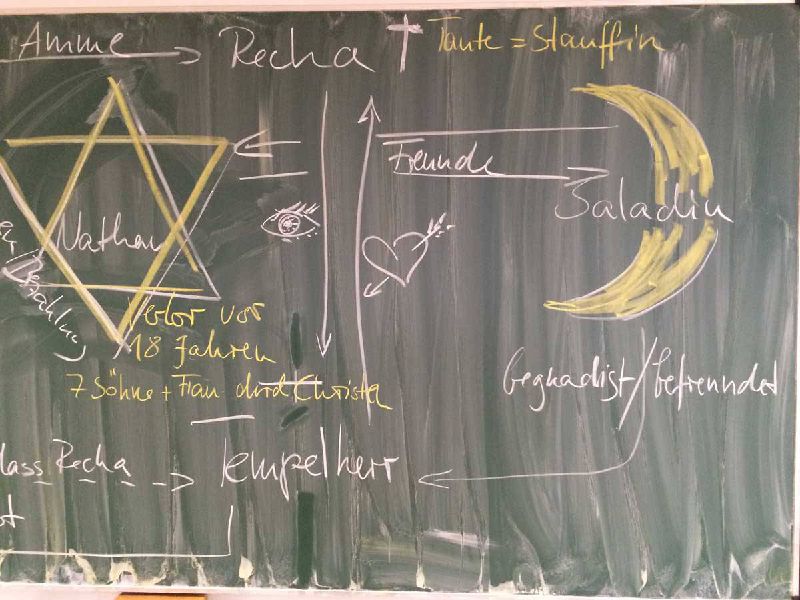 Amme Recha Tante = Stauffin
Freunde
Saladin
Nathan
Bezahlung
Verlor vor
18 Jahren
7 Söhne + Frau durch Christen
begnadigt / befreundet
dass Recha
Tempelherr